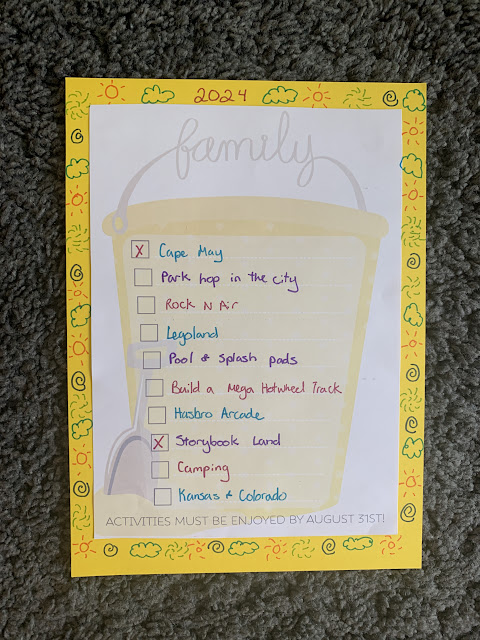 2024
family
X Cape May
Park hop in the city
Rock N Air
Legoland
Pool & Splash pads
Build a Mega Hotwheel Track
Hasbro Arcade
X Storybook Land
Camping
Kansas & Colorado
ACTIVITIES MUST BE ENJOYED BY AUGUST 31ST!